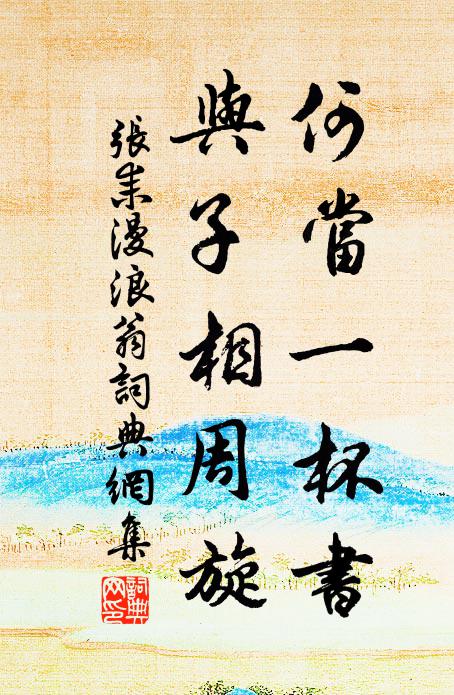 何當一杯書
與子相周旋
張耒漫浪翁詞典網集
詞典网印